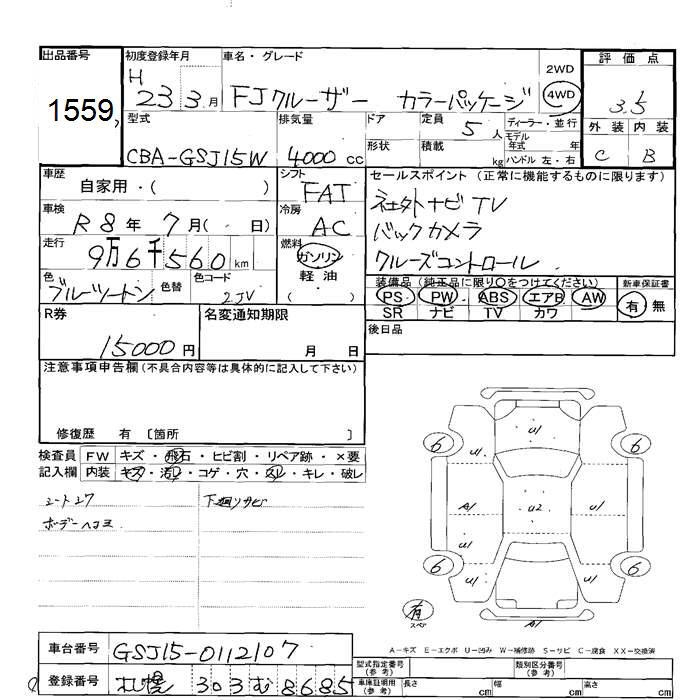 出品番号 初度登録年月 車名・グレード 2WD 評価点
1559 H 23 3月 FJクルーザー カラーパッケージ 4WD 3.5
型式 排気量 ドア 定員 5人 ディーラー・並行 外装 内装
CBA-GSJ15W 4000cc 形状 積載 kg モデル年式 年 ハンドル 左・右 C B
車歴 自家用・( ) シフト FAT セールスポイント (正常に機能するものに限ります)
車検 R8年7月( 日) 冷房 AC 社外ナビ TV
バックカメラ
走行 9万6千560km 燃料 ガソリン 軽油 ( ) クルーズコントロール
色 ブルーツートン 色替 色コード 2JV 装備品 (純正品に限り○をつけてください) 新車保証書
PS PW ABS エアB AW 有 無
SR ナビ TV カワ
R券 15000円 名変通知期限 月 日 後日品
注意事項申告欄(不具合内容等は具体的に記入して下さい)
修復歴 有 〔箇所 〕
検査員 FW キズ・飛石・ヒビ割・リペア跡・×要
記入欄 内装 キズ・汚レ・コゲ・穴・スレ・キレ・破レ
シートスレ 下廻リサビ
ボデーヘコミ
U1
6 6
U1 U1
A1 U2 U1
U1 U1
6 6
U1 U1
有 スペア A1
A-キズ E-エクボ U-凹み W-補修跡 S-サビ C-腐食 XX-交換済
車台番号 GSJ15-0112107 型式指定番号(参考) 類別区分番号(参考)
登録番号 札幌 303 む 8685 車庫証明用(参考) 長さ cm 幅 cm 高さ cm